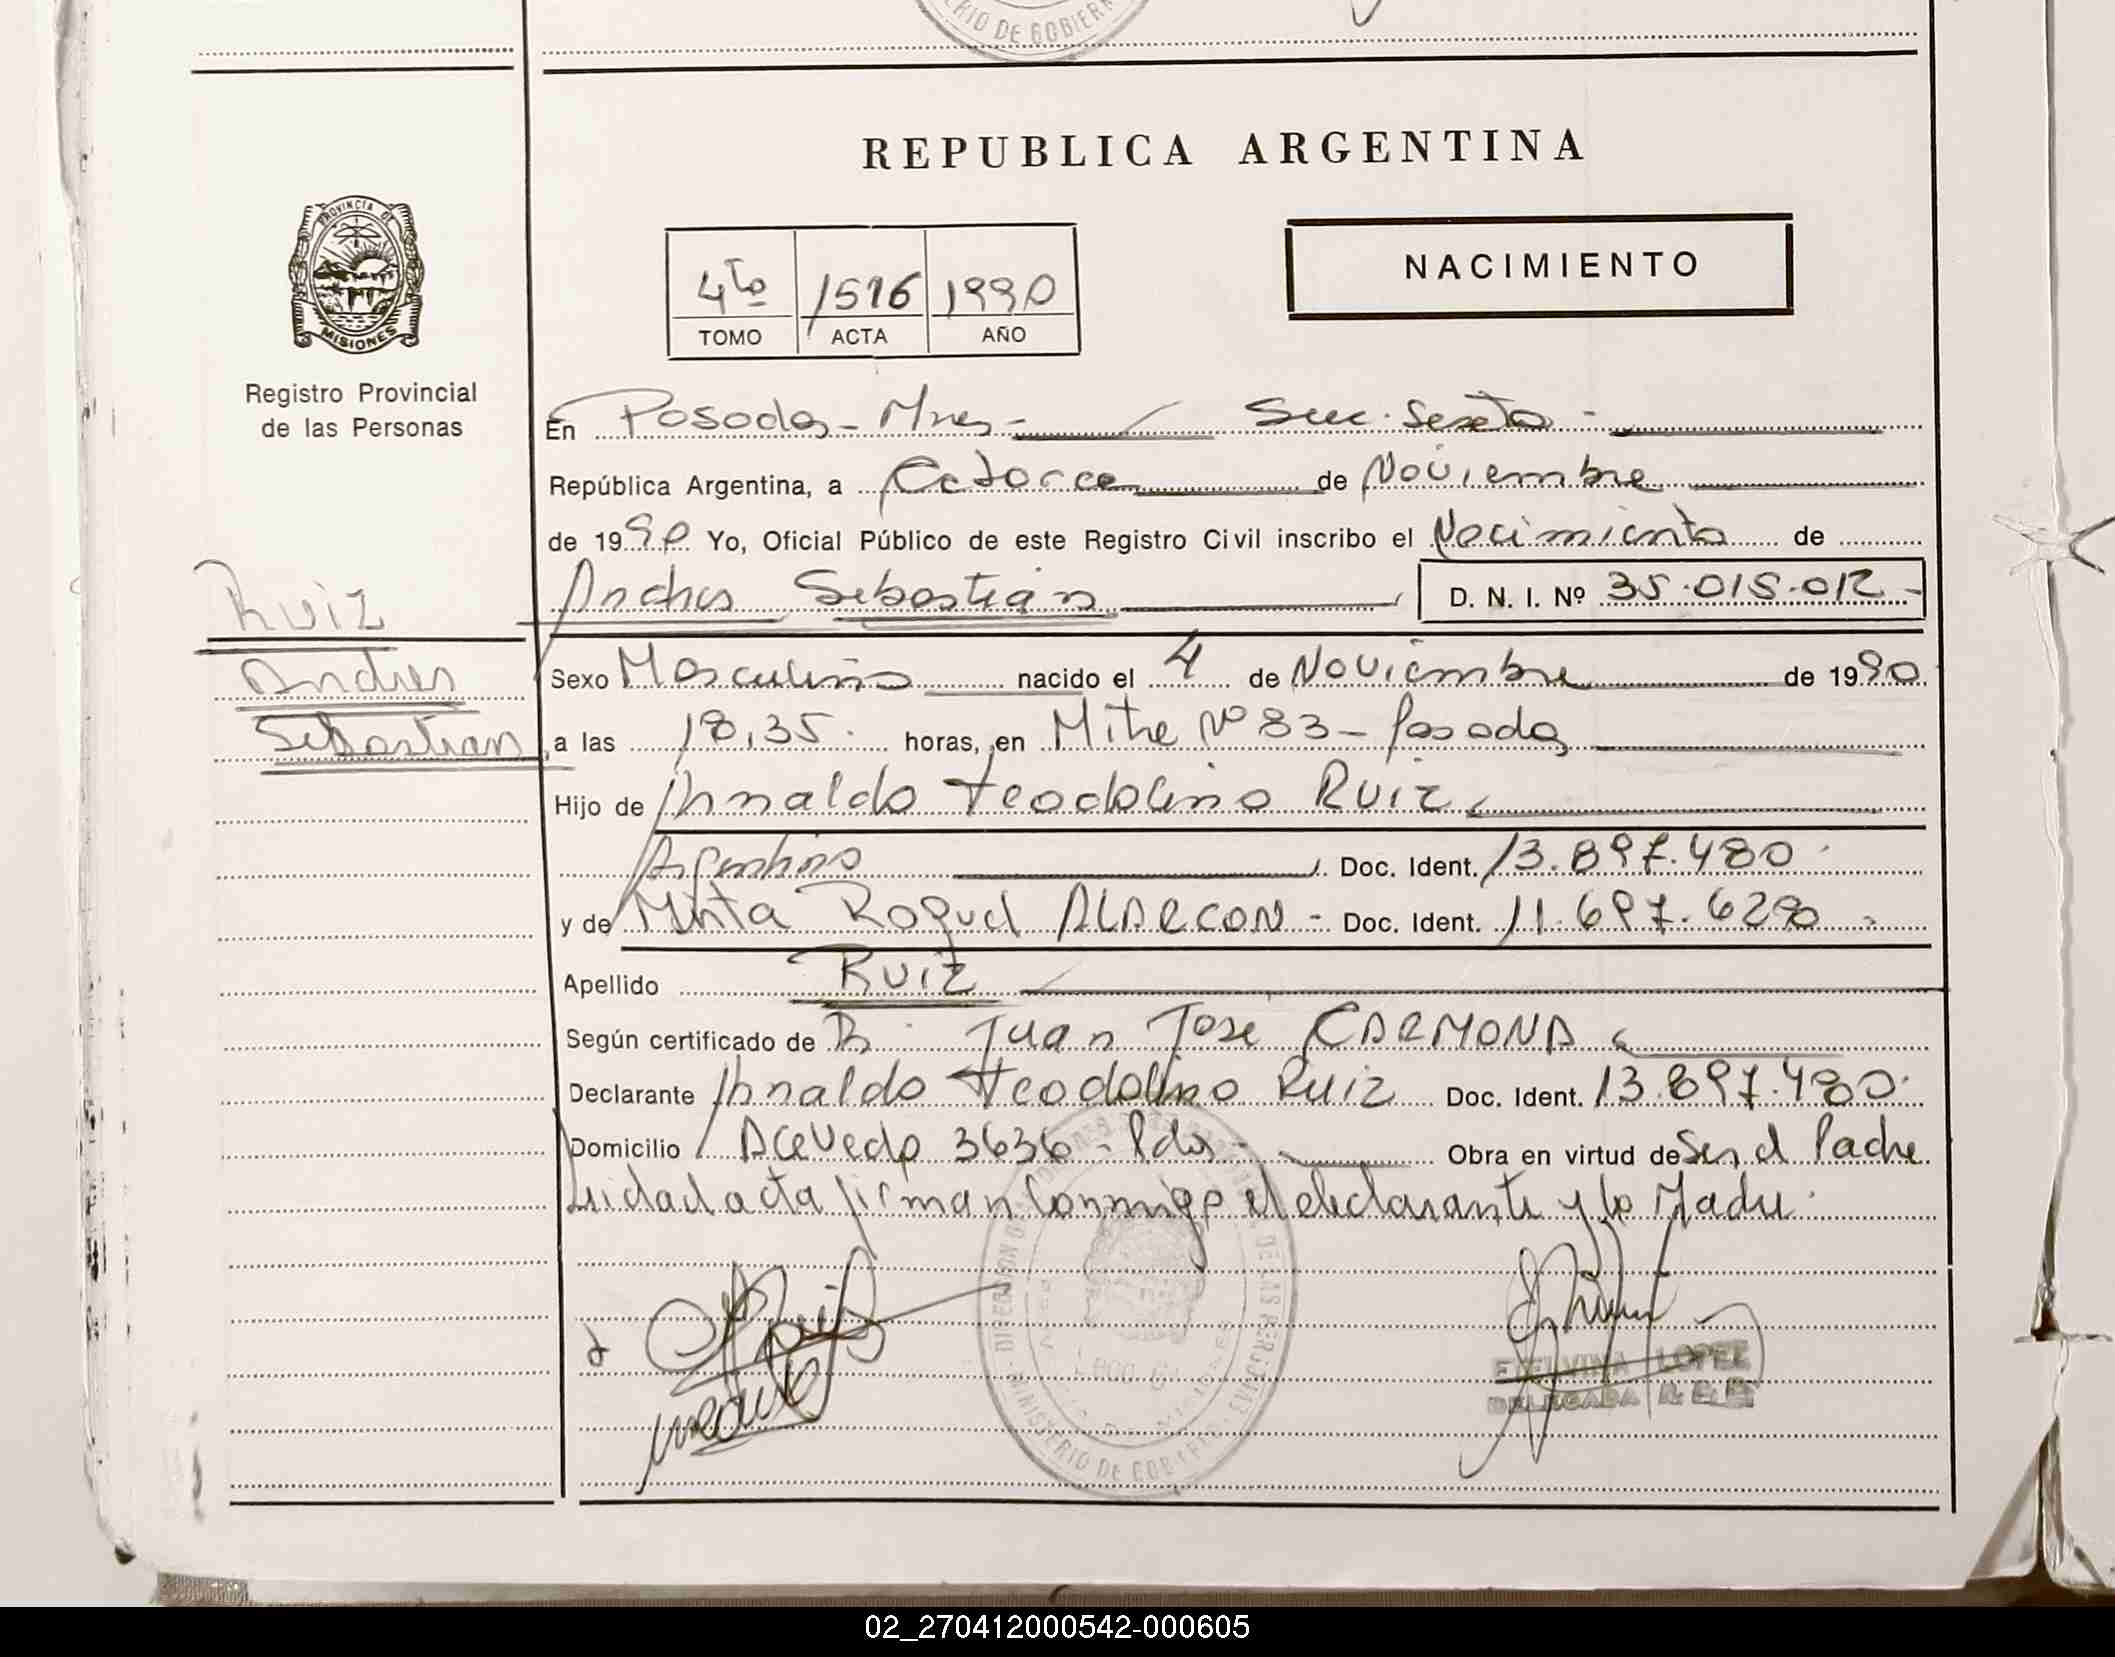 REPUBLICA ARGENTINA
PROVINCIA DE
MISIONES
Registro Provincial
de las Personas
4to 1516 1990
TOMO ACTA AÑO
NACIMIENTO
En Posadas - Mnes - Secc. Sexta -
República Argentina, a Catorce de Noviembre
de 1990 Yo, Oficial Público de este Registro Civil inscribo el Nacimiento de
Andres Sebastián D. N. I. Nº 35.015.012 -
Ruiz
Andres
Sebastian
Sexo Masculino nacido el 4 de Noviembre de 1990
a las 18,35. horas, en Mitre Nº 83 - Posadas
Hijo de Arnaldo Teodolino Ruiz
Argentino Doc. Ident. 13.897.480
y de Mirta Raquel ALARCON - Doc. Ident. 11.697.6290
Apellido RUIZ
Según certificado de Dr. Juan Jose CARMONA
Declarante Arnaldo Teodolino Ruiz Doc. Ident. 13.897.480.
Domicilio Acevedo 3636 - Pdas - Obra en virtud de Ser el Padre
Leida el acta firman conmigo el declarante y la Madre.
LOPEZ
DELEGADA
MINISTERIO DE GOBIERNO
02_270412000542-000605